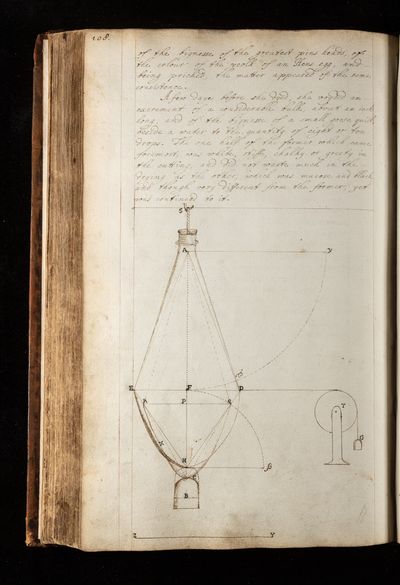 108.
of the bignesse of the greatest pins heads, of
the colour of the yeolk of an Hens egg, and
being pricked, the matter appeared of the same
consistence.
A few days before she dyed, she voyded an
excrement of a considerable bulk, about an inch
long, and of the bignesse of a small goose quill,
beside a water to the quantity of eight or ten
drops. The one half of the former which came
foremost, was white, stiffe, chalky or greety in
the cutting, and did not wast much in the
drying as the other, which was mucose and black,
and though very different from the former, yet
was continued to it.
S
A y
E F D
P
X
H β
B
T
G
Z Y